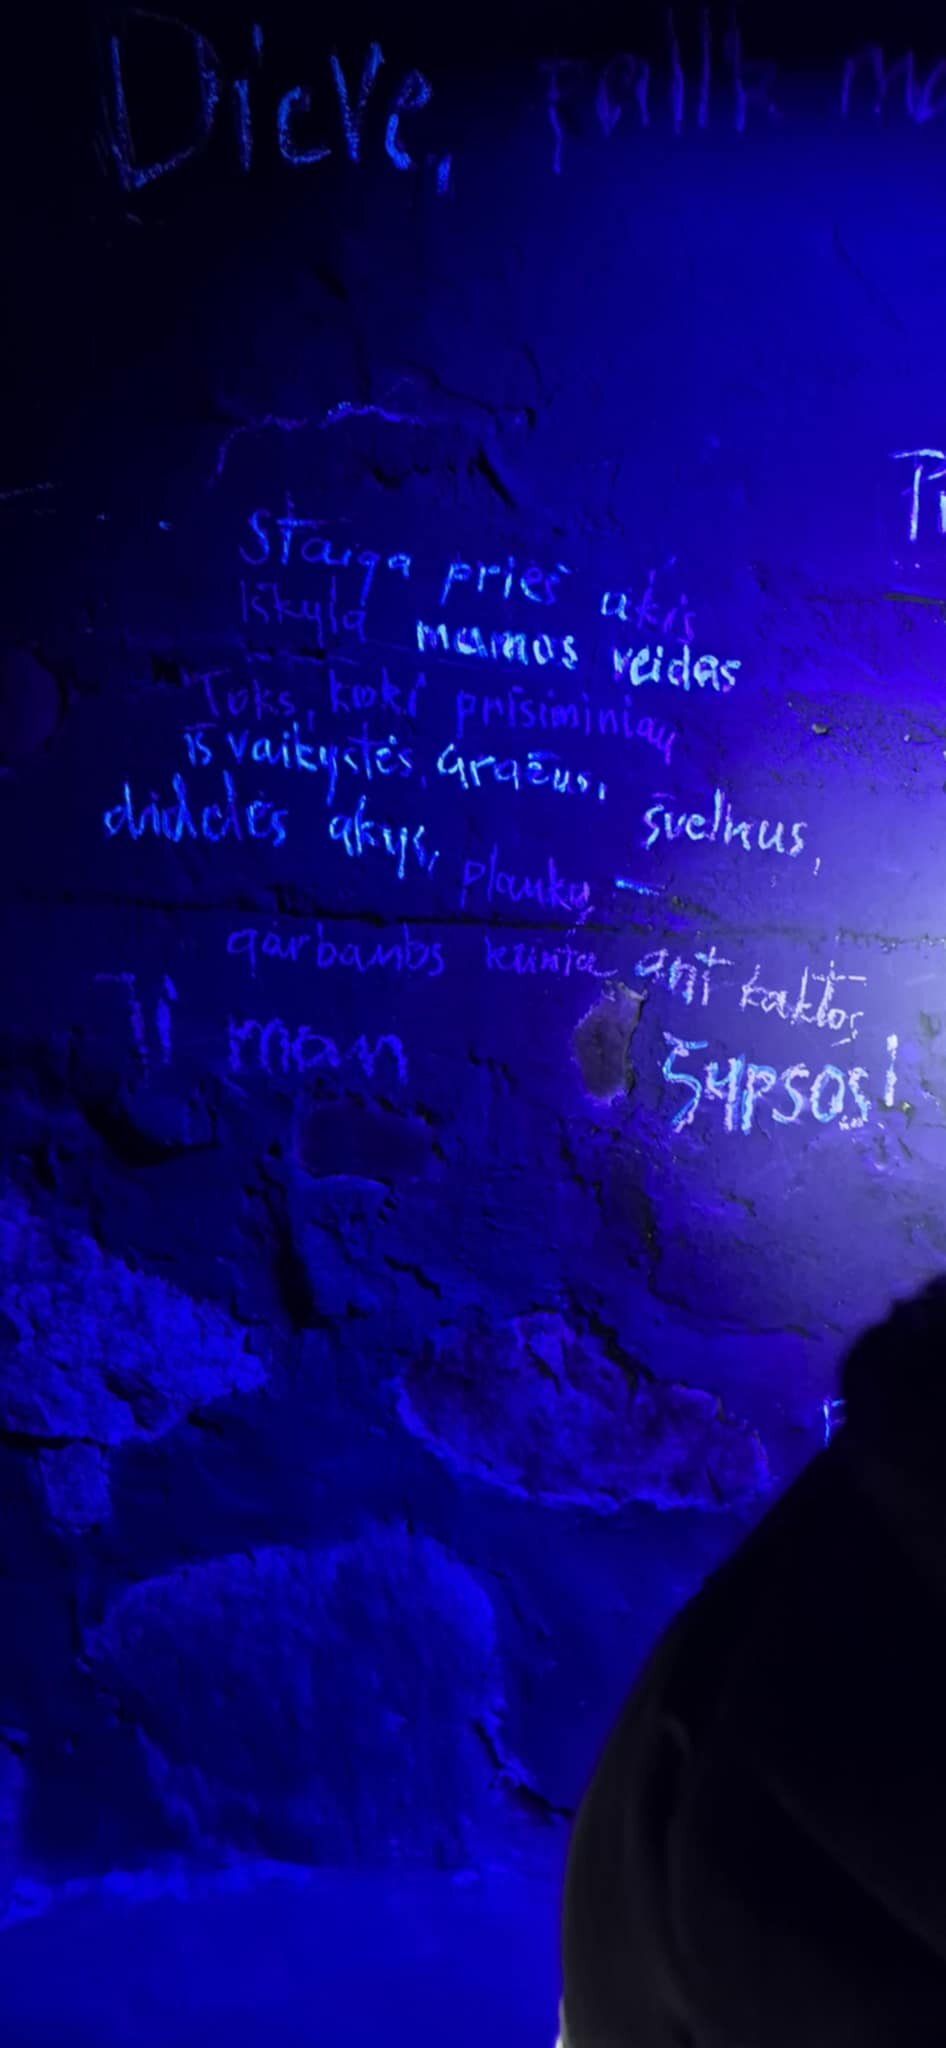 Dieve,
Staiga prieš akis
Iškyla mamos veidas
Toks, kokį prisiminiau
iš vaikystės, gražus,
švelnus,
didelės akys, plaukų –
garbanos krinta ant kaktos
Ji man šypsos!